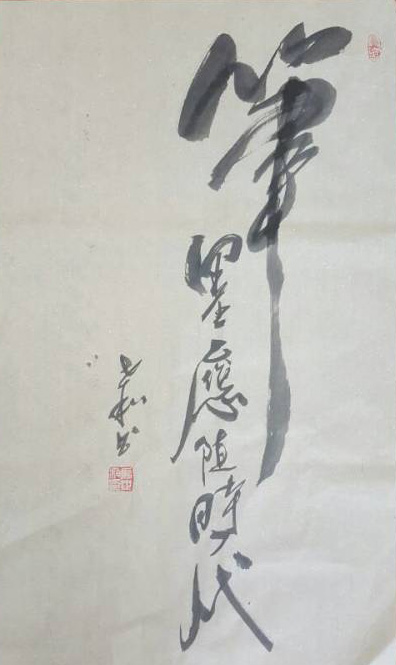 筆墨應隨時代